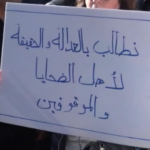 نطالب بالعدالة والحقيقة
لأهل الضحايا
والموقوفين